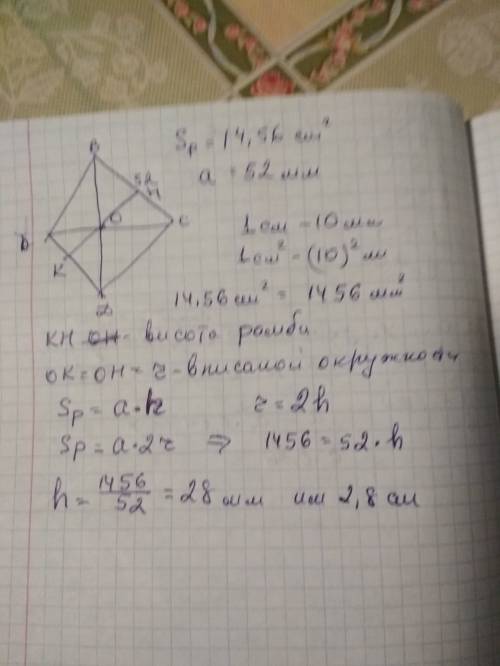 Sр = 14,56 см²
a = 52 мм
B
52
H
O
C
K
D
1 см - 10 мм
1 см² - (10)² м
14,56 см² = 1456 мм²
KH - висота ромби
OK = OH = r - вписаной окружности
Sр = a · h
r = 2h
Sр = a · 2r ⇒ 1456 = 52 · h
h = 1456/52 = 28 мм или 2,8 см